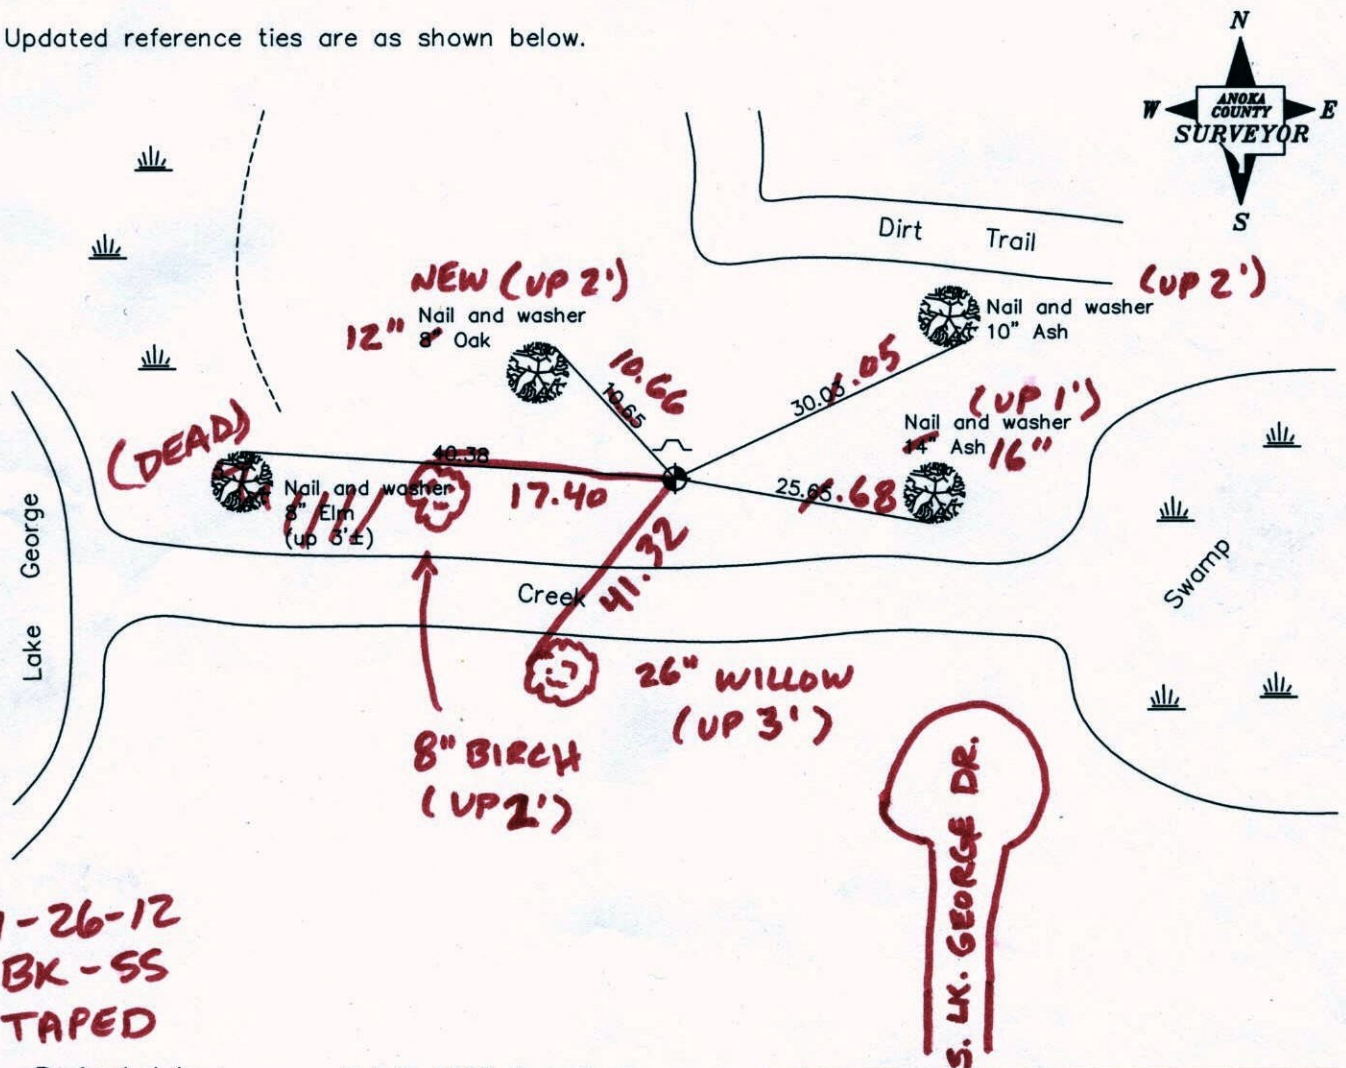 Updated reference ties are as shown below.
N
W
ANOKA
COUNTY
SURVEYOR
E
S
Dirt Trail
NEW (UP 2')
Nail and washer
12" 8" Oak
10.66
10.65
(UP 2')
Nail and washer
10" Ash
30.03 .05
(UP 1')
Nail and washer
14" Ash 16"
25.65 .68
(DEAD)
40.38
17.40
Nail and washer
8" Elm
(up 3'±)
Lake George
Creek
41.32
Swamp
26" WILLOW
(UP 3')
8" BIRCH
(UP 2')
S. LK. GEORGE DR.
-26-12
BK - SS
TAPED